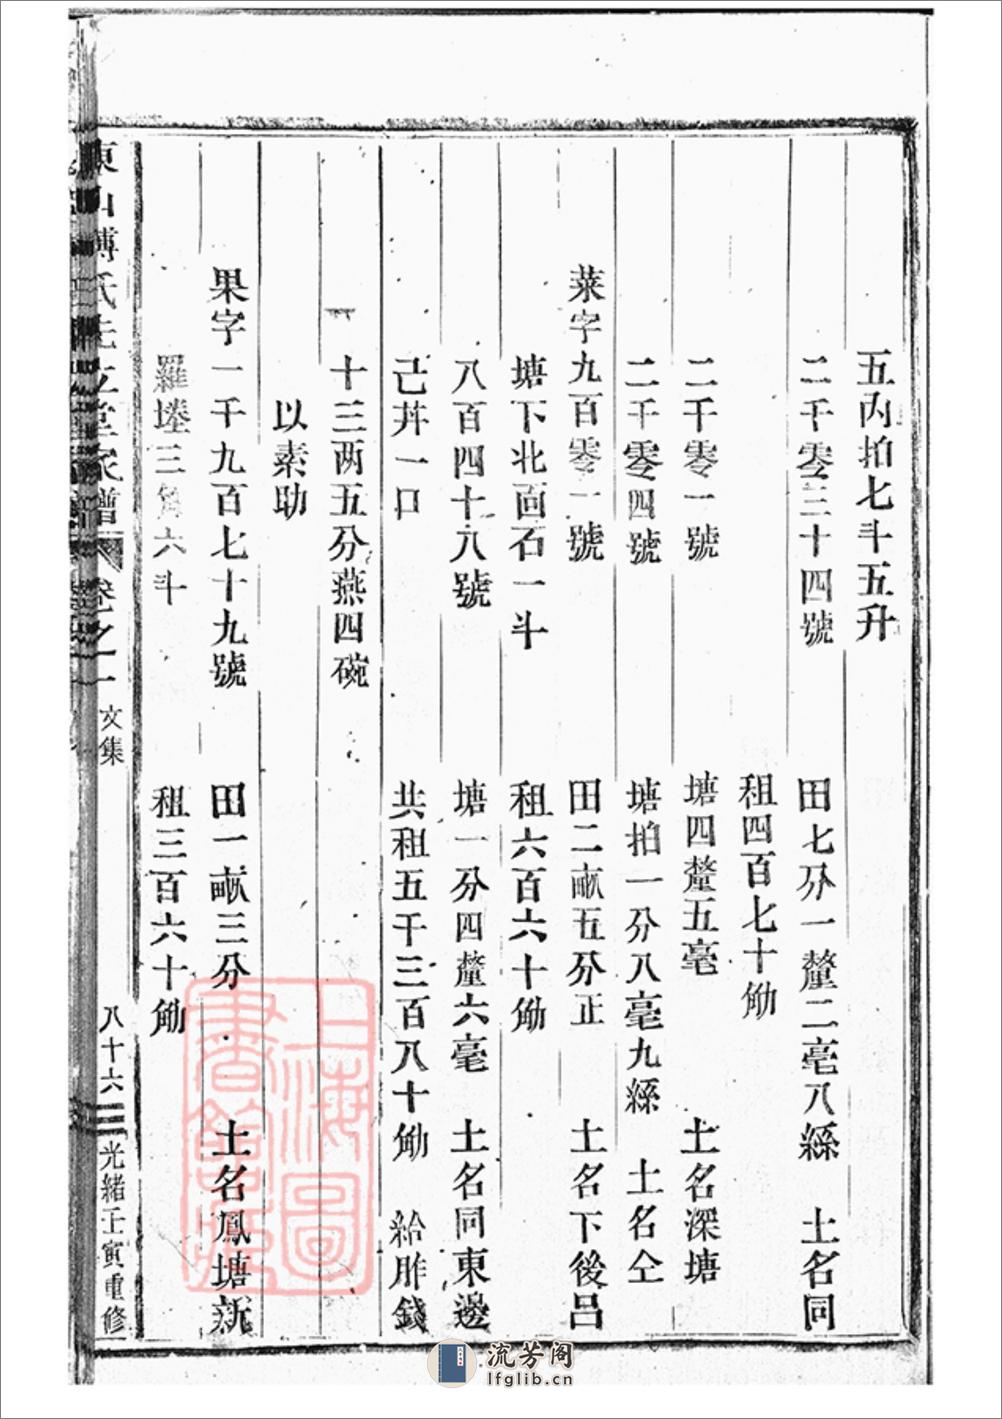 五丙拍七斗五升
二千零三十四號 田七分一釐二毫八絲 土名同
租四百七十觔
二千零一號 塘四釐五毫 土名深塘
二千零四號 塘拍一分八毫九絲 土名仝
菜字九百零一號 田二畝五分正 土名下後呂
塘下北面石一斗 租六百六十觔
八百四十八號 塘一分四釐六毫 土名同東邊
己井一口 共租五千三百八十觔 給胙錢
十三两五分燕四碗
以素助
果字一千九百七十九號 田一畝三分 土名鳳塘新
羅塋三角六斗 租三百六十觔
東山傅氏先立堂家譜 卷之一 文集 八十六 光緒壬寅重修
上海圖書館藏
流芳阁
lfglib.cn